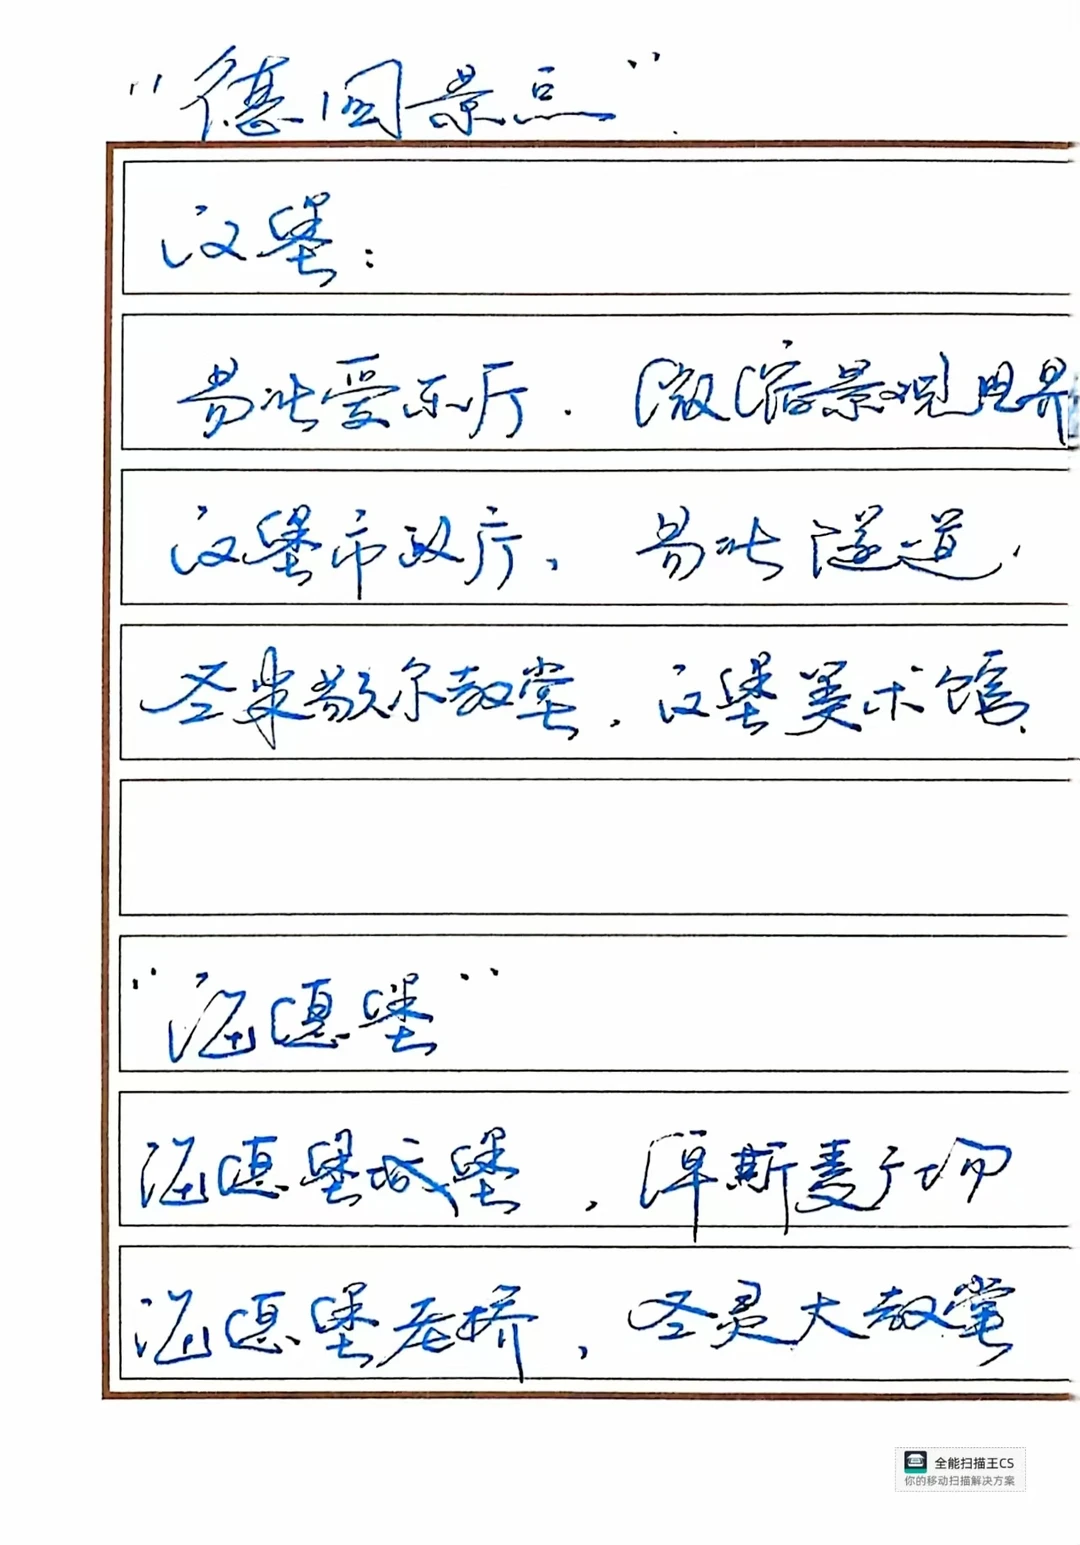 “德国景点”
汉堡：
易北爱乐厅．微缩景观世界
汉堡市政厅，易北隧道，
圣米歇尔教堂，汉堡美术馆．
“海德堡”
海德堡城堡，俾斯麦广场
海德堡老桥，圣灵大教堂
全能扫描王CS
你的移动扫描解决方案